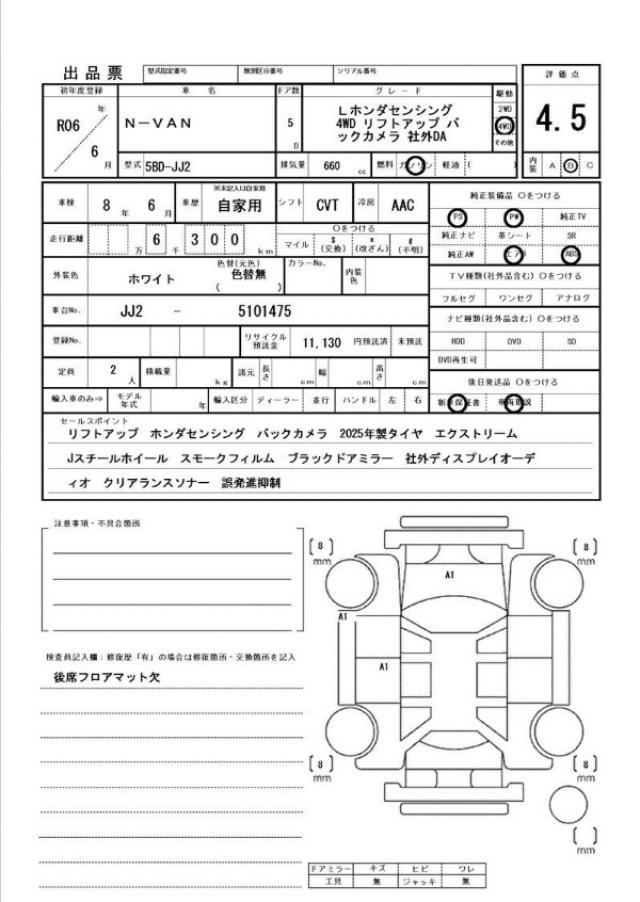 出品票 型式指定番号 類別区分番号 シリアル番号
評価点
4.5
初年度登録 車名 ドア数 グレード 駆動
R06 年
6 月
N-VAN
5
D
Lホンダセンシング
4WD リフトアップ バ
ックカメラ 社外DA
2WD
4WD
その他
型式 5BD-JJ2 排気量 660 cc 燃料 ガソリン 軽油 ( )
内装 A B C
車検 8年 6月 車歴 自家用 シフト CVT 冷房 AAC
走行距離 万 6 千 3 0 0 km
○をつける
マイル $(交換) *(改ざん) #(不明)
外装色 ホワイト 色替(元色) 色替無
( )
カラーNo. 内装色
車台No. JJ2 - 5101475
登録No. リサイクル預託金 11,130 円預託済 未預託
定員 2人 積載量 kg 諸元 長さ cm 幅 cm 高さ cm
輸入車のみ⇒ モデル年式 年 輸入区分 ディーラー 並行 ハンドル 左 右
純正装備品 ○をつける
PS PW 純正TV
純正ナビ 革シート SR
純正AW エアB ABS
TV種類(社外品含む) ○をつける
フルセグ ワンセグ アナログ
ナビ種類(社外品含む) ○をつける
HDD DVD SD
DVD再生可
後日発送品 ○をつける
新車保証書 車両取説
セールスポイント
リフトアップ ホンダセンシング バックカメラ 2025年製タイヤ エクストリーム
Jスチールホイール スモークフィルム ブラックドアミラー 社外ディスプレイオーデ
ィオ クリアランスソナー 誤発進抑制
注意事項・不具合箇所
検査員記入欄:修復歴「有」の場合は修復箇所・交換箇所を記入
後席フロアマット欠
[8] mm
[8] mm
A1
A1
A1
[8] mm
[8] mm
[ ] mm
ドアミラー キズ ヒビ ワレ
工具 無 ジャッキ 無